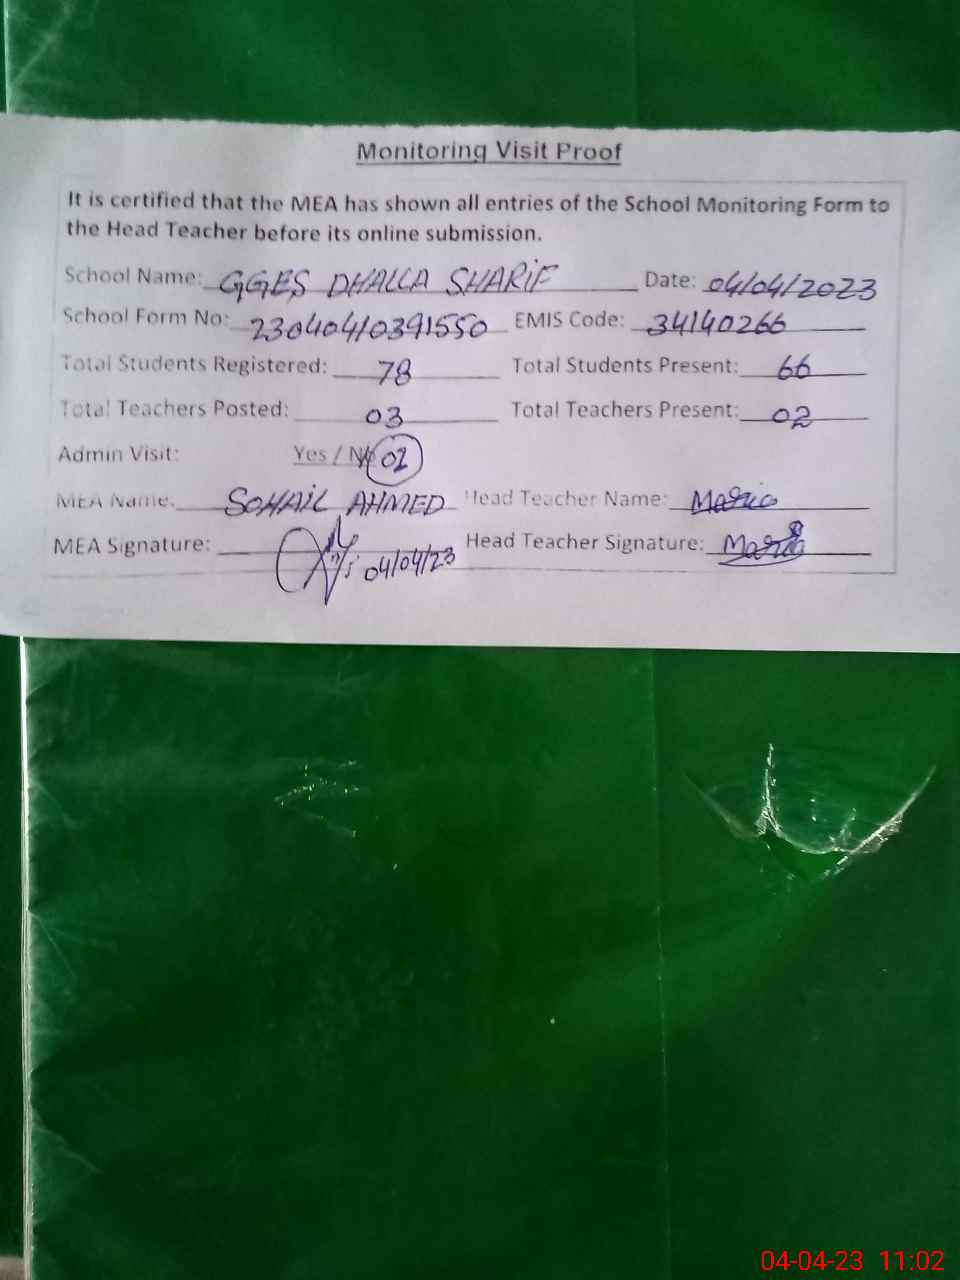 Monitoring Visit Proof
It is certified that the MEA has shown all entries of the School Monitoring Form to
the Head Teacher before its online submission.
School Name: GGES DHALLA SHARIF Date: 04/04/2023
School Form No: 23040410391550 EMIS Code: 34140266
Total Students Registered: 78 Total Students Present: 66
Total Teachers Posted: 03 Total Teachers Present: 02
Admin Visit: Yes / No 02
MEA Name: SOHAIL AHMED Head Teacher Name:
MEA Signature: 04/04/23 Head Teacher Signature:
04-04-23 11:02